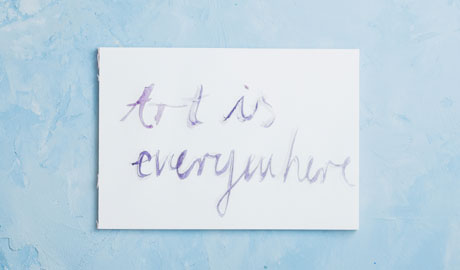 Art is
everywhere